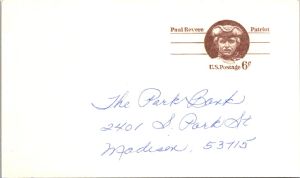 Paul Revere Patriot
U.S. Postage 6¢
The Park Bank
2401 S. Park St
Madison, 53715